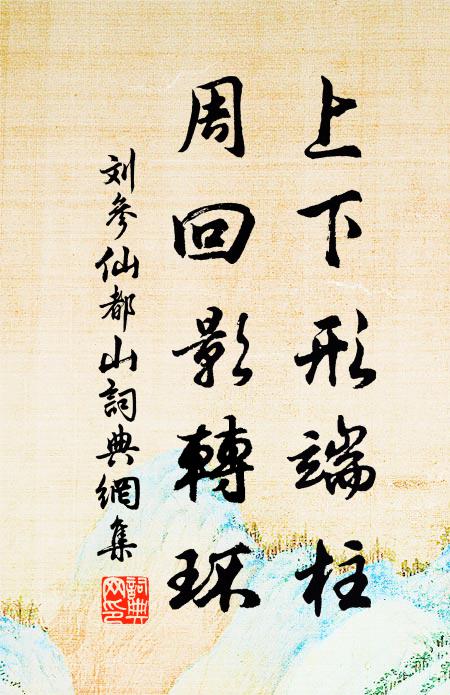 上下形端柱
周回影轉环
刘參仙都山詞典網集
詞典网印